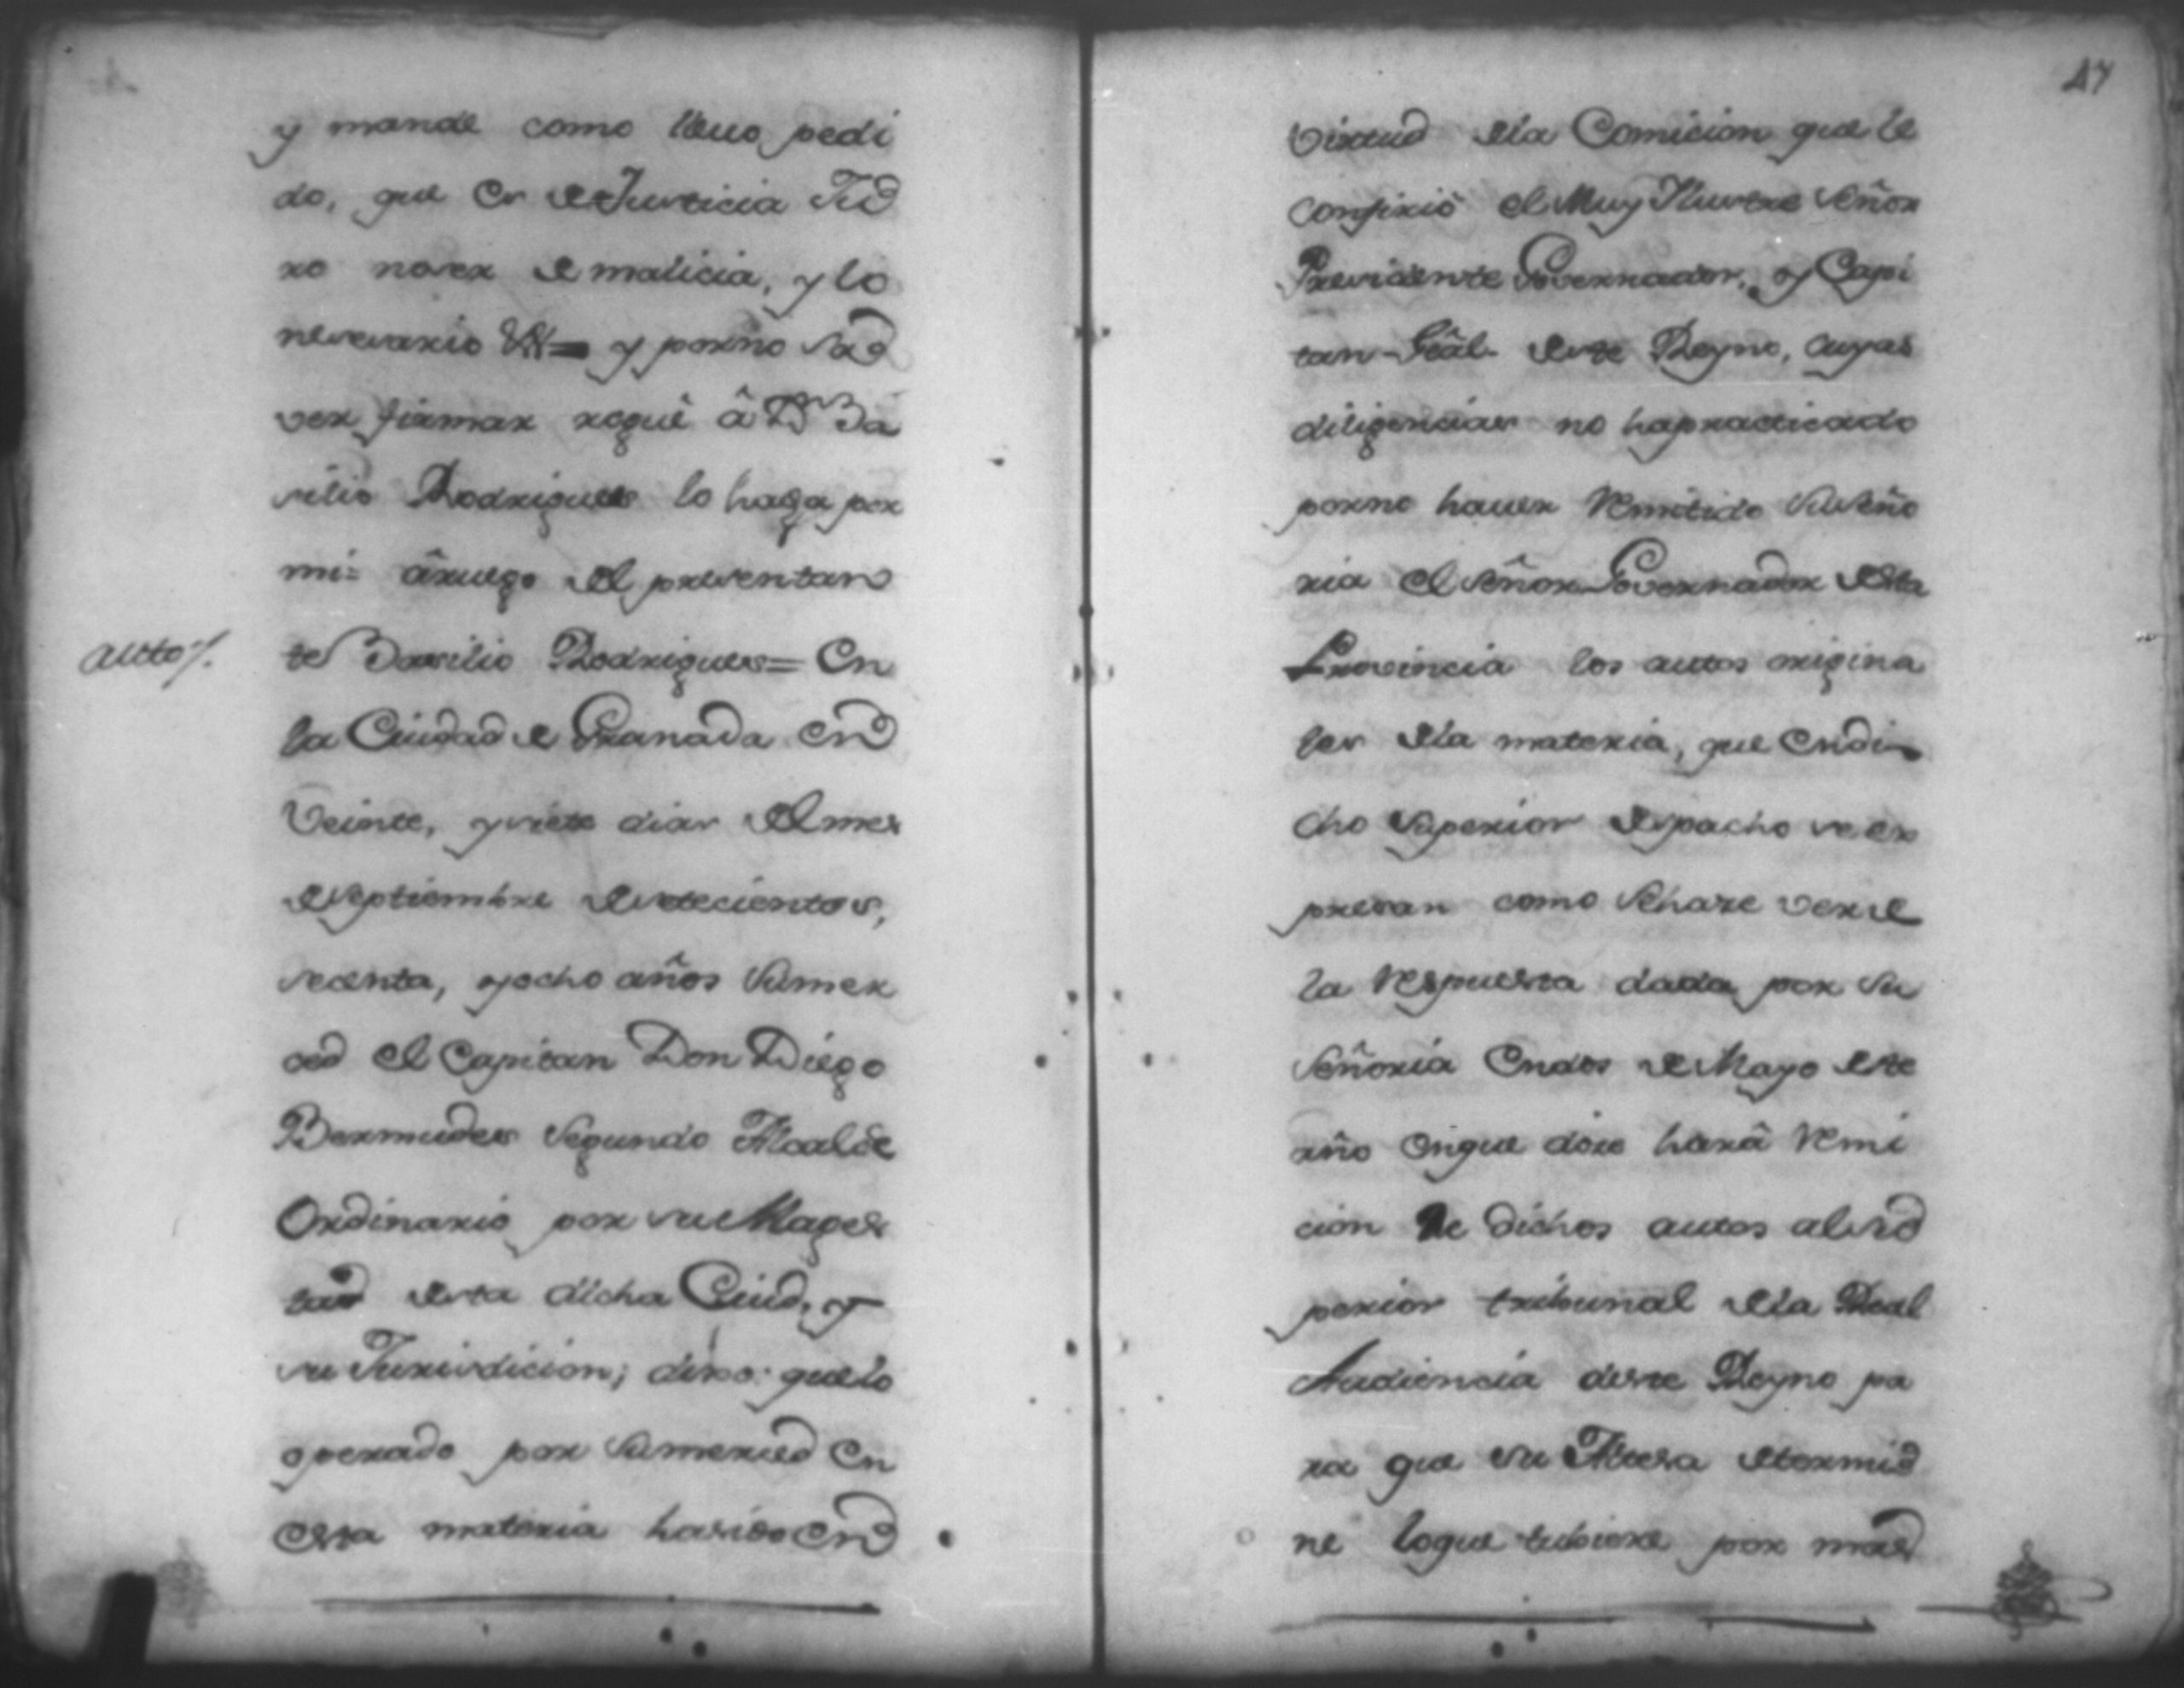 y mande como lleuo pedi
do, que es de Justicia Ju
ro no ser de malicia, y lo
nesesario &a = y por no sa
ver firmar rogué â Dn Ba
silio Rodrigues lo haga por
mi = âruego del presentan
te Basilio Rodrigues = En
auto /.
la Ciudad de Granada en
Veinte, y siete dias del mes
de Septiembre de setecientos,
secenta, y ocho años Sumer
ced el Capitan Don Diego
Bermudes Segundo Alcalde
Ordinario por su Mages
tad desta dicha Ciud, y
su Jurisdicion; dixo: que lo
operado por Sumerced en
esta materia hasido en
47
Virtud dela Comicion que le
confirió el Muy Ylustre Señor
Presidente Governador, y Capi
tan Grâl deste Reyno, cuyas
diligencias no hapracticado
porno hauer Remitido Su Seño
ria el Señor Governador desta
Provincia los autos origina
les dela materia, que en di
cho Superior despacho se ex
presan como Sehaze ver de
la Respuesta dada por Su
Señoria en dos de Mayo deste
año en que dixo hará Remi
cion de dichos autos al su
perior tribunal dela Real
Audiencia deste Reyno pa
ra que su Altesa determi
ne loque tubiere por mas